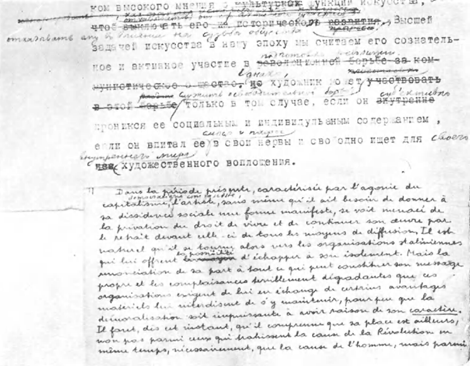 ком высокого мнения о культурной функции искусства,
что выключать его из исторического развития. Высшей
отказывать ему во влиянии на судьбы общества
задачей искусства в нашу эпоху мы считаем его сознатель-
ное и активное участие в революционной борьбе за ком-
подготовке революции
мунистическое общество. Но художник может участвовать
Однако,
служить освободительной борьбе
в этой борьбе только в том случае, если он внутренне
субъективно
проникся ее социальным и индивидульным содержанием,
если он впитал ее в свои нервы и свободно ищет для
своего
внутреннего мира
нее художественного воплощения.
Dans la période présente, caractérisée par l'agonie du
capitalisme, l'artiste, sans même qu'il ait besoin de donner à
sa dissidence sociale une forme manifeste, se voit menacé de
la privation du droit de vivre et de continuer son œuvre par
le retrait devant celle-ci de tous les moyens de diffusion. Il est
naturel qu'il se tourne alors vers les organisations staliniennes
qui lui offrent la possibilité d'échapper à son isolement. Mais la
renonciation de sa part à tout ce qui peut constituer son message
propre et les complaisances terriblement dégradantes que ces
organisations exigent de lui en échange de certains avantages
matériels lui interdisent de s'y maintenir, pour peu que la
démoralisation soit impuissante à avoir raison de son caractère.
Il faut, dès cet instant, qu'il comprenne que sa place est ailleurs,
non pas parmi ceux qui trahissent la cause de la Révolution en
même temps, nécessairement, que la cause de l'homme, mais parmi